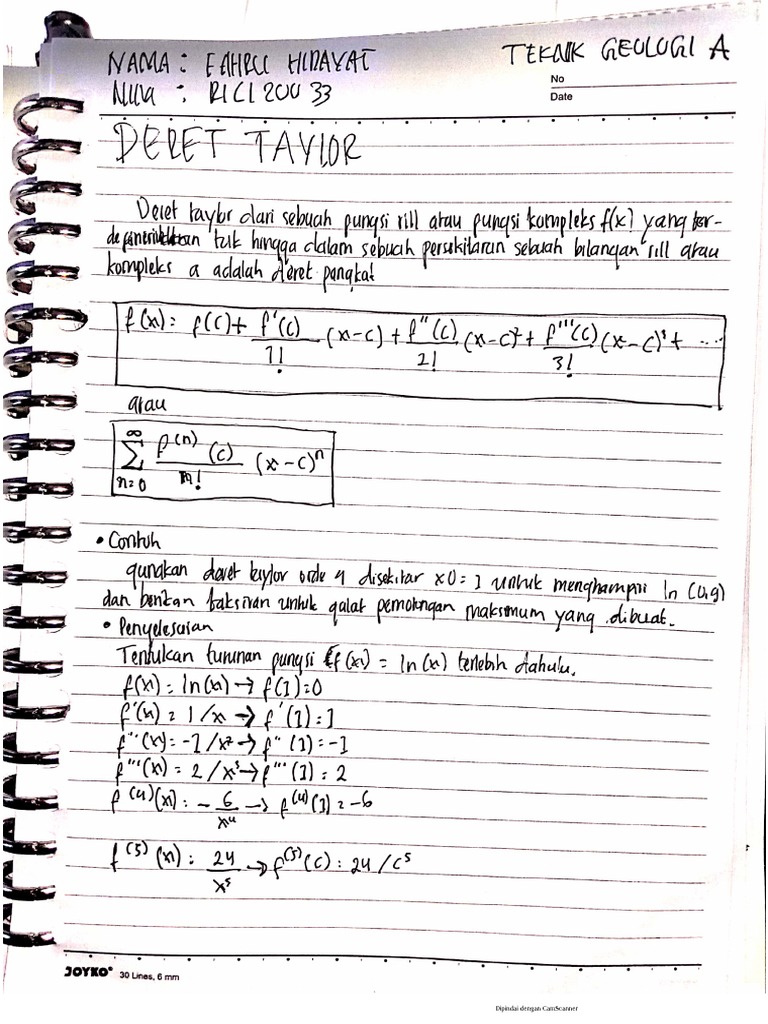 NAMA : FAHRU HIDAYAT
TEKNIK GEOLOGI A
NIM : R1C1200 33
No
Date
DERET TAYLOR
Deret taylor dari sebuah pungsi rill atau pungsi kompleks f(x) yang ter-
tak hingga dalam sebuah persekitaran sebuah bilangan rill atau
kompleks a adalah deret pangkat
f(x) = f(c) + f'(c)/1! (x-c) + f''(c)/2! (x-c)² + f'''(c)/3! (x-c)³ + ...
atau
∞ Σ n=0 f^(n) (c)/n! (x-c)^n
• Contoh
gunakan deret taylor orde 4 disekitar x0 = 1 untuk menghampiri ln (0,9)
dan berikan taksiran untuk galat pemotongan maksimum yang dibuat.
• Penyelesaian
Tentukan turunan pungsi f(x) = ln(x) terlebih dahulu.
f(x) = ln(x) → f(1) = 0
f'(x) = 1/x → f'(1) = 1
f''(x) = -1/x² → f''(1) = -1
f'''(x) = 2/x³ → f'''(1) = 2
f^(4)(x) = - 6/x⁴ → f^(4)(1) = -6
f^(5)(x) = 24/x⁵ → f^(5)(c) = 24/c⁵
JOYKO 30 Lines, 6 mm
Dipindai dengan CamScanner